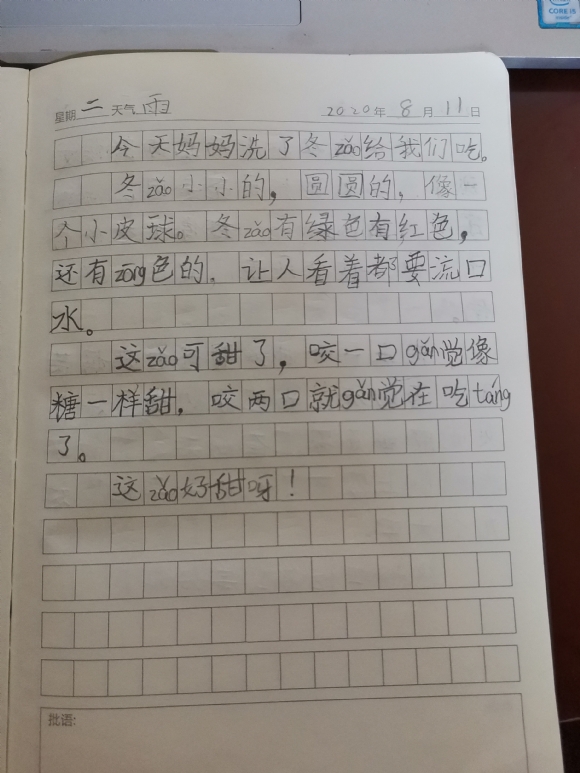 CORE i5
星期 二 天气 雨 2020年 8月 11日
今天妈妈洗了冬zǎo给我们吃。
冬zǎo小小的，圆圆的，像一
个小皮球。冬zǎo有绿色有红色，
还有zōng色的。让人看着都要流口
水。
这zǎo可甜了，咬一口gǎn觉像
糖一样甜，咬两口就gǎn觉在吃táng
了。
这zǎo好甜呀！
批语: